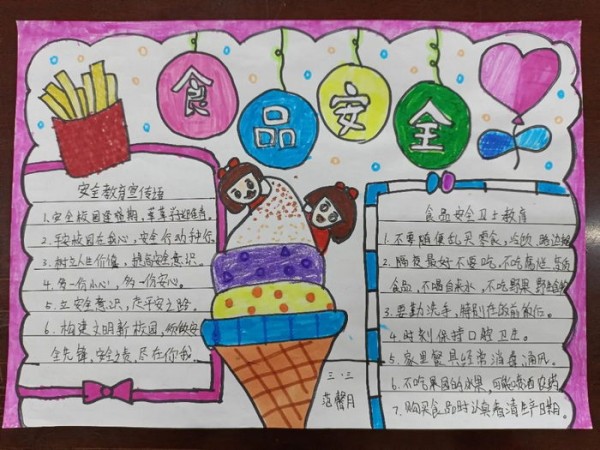 食品安全
安全教育宣传语
1、安全校园
2、平安校园在我心，安全行动
3、树立人生价值，提高安全意识。
4、多一份小心，多一份安心。
5、立安全意识，走平安之路。
6、构建文明新校园，
全先锋，安全 尽在你我。
食品安全卫生教育
1、不要随便乱买零食，冷饮、路边
2、隔夜最好不要吃，不吃腐烂、变质
食品，不喝自来水，不吃野果、野
3、要勤洗手，特别在饭前
4、时刻保持口腔卫生。
5、家里餐具经常消毒通风。
6、不吃 的水果，可能 农药
7、购买食品时认真看清生产日期。
三·三
范馨月